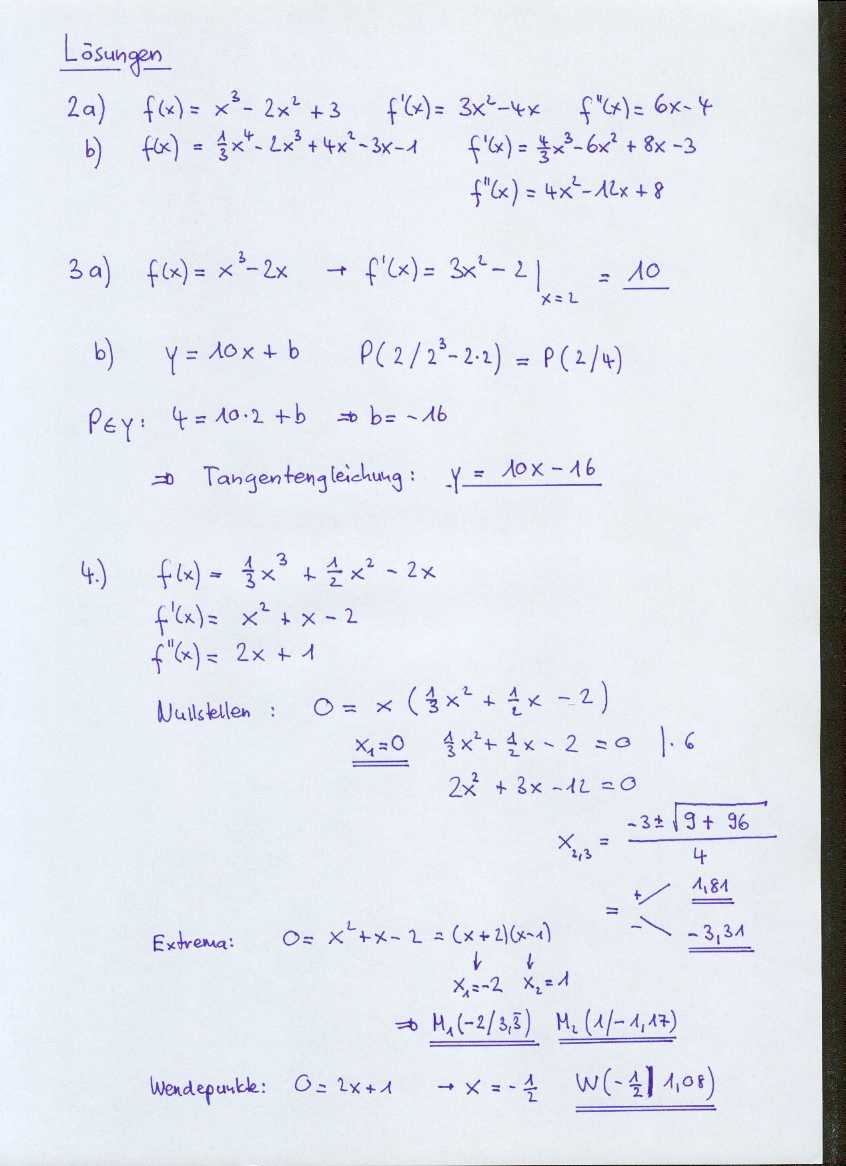 Lösungen
2a) f(x) = x³ - 2x² + 3 f'(x) = 3x² - 4x f''(x) = 6x - 4
b) f(x) = 1/3 x⁴ - 2x³ + 4x² - 3x - 1 f'(x) = 4/3 x³ - 6x² + 8x - 3
f''(x) = 4x² - 12x + 8
3a) f(x) = x³ - 2x → f'(x) = 3x² - 2 |ₓ₌₂ = 10
b) y = 10x + b P(2/2³-2·2) = P(2/4)
P∈y: 4 = 10·2 + b ⇒ b = -16
⇒ Tangentengleichung: y = 10x - 16
4.) f(x) = 1/3 x³ + 1/2 x² - 2x
f'(x) = x² + x - 2
f''(x) = 2x + 1
Nullstellen: 0 = x (1/3 x² + 1/2 x - 2)
x₁=0 1/3 x² + 1/2 x - 2 = 0 |·6
2x² + 3x - 12 = 0
x₂,₃ = (-3 ± √(9 + 96)) / 4
= + 1,81
- -3,31
Extrema: 0 = x² + x - 2 = (x+2)(x-1)
↓ ↓
x₁=-2 x₂=1
⇒ M₁(-2/3,3̄) M₂(1/-1,17)
Wendepunkte: 0 = 2x + 1 → x = -1/2 W(-1/2 | 1,08)